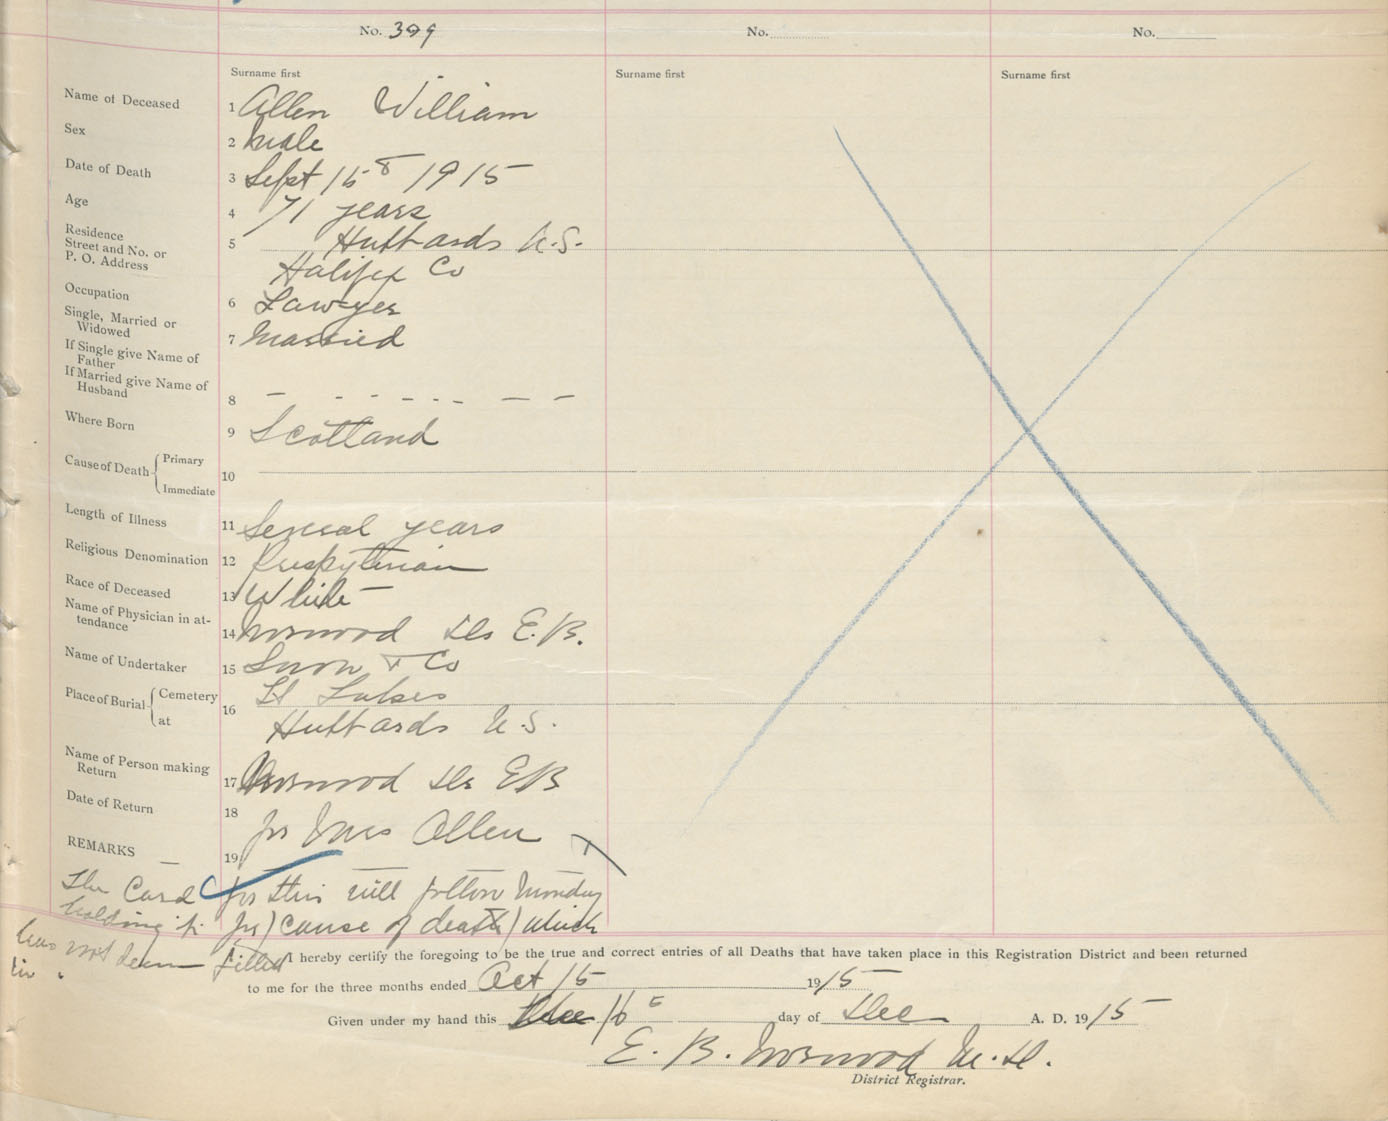 No. 399
No.
No.
Surname first
Surname first
Surname first
Name of Deceased 1 Allen William
Sex 2 Male
Date of Death 3 Sept 15 1915
Age 4 71 years
Residence
Street and No. or
P. O. Address 5 Hubbards N.S.
Halifax Co
Occupation 6 Lawyer
Single, Married or
Widowed 7 Married
If Single give Name of
Father
If Married give Name of
Husband 8 - - - - - - - -
Where Born 9 Scotland
Cause of Death { Primary
Immediate 10
Length of Illness 11 Several years
Religious Denomination 12 Presbyterian
Race of Deceased 13 White
Name of Physician in at-
tendance 14 Norwood Dr E.B.
Name of Undertaker 15 Snow & Co
Place of Burial { Cemetery 16 St Lukes
at Hubbards N.S.
Name of Person making
Return 17 Norwood Dr E B
Date of Return 18
for Mrs Allen
REMARKS 19
The Card for this will follow Monday
holding it for) cause of death) which
has not been filled
in.
I hereby certify the foregoing to be the true and correct entries of all Deaths that have taken place in this Registration District and been returned
to me for the three months ended Oct 15 1915
Given under my hand this 16 day of Dec A. D. 1915
E. B. Norwood M.D.
District Registrar.